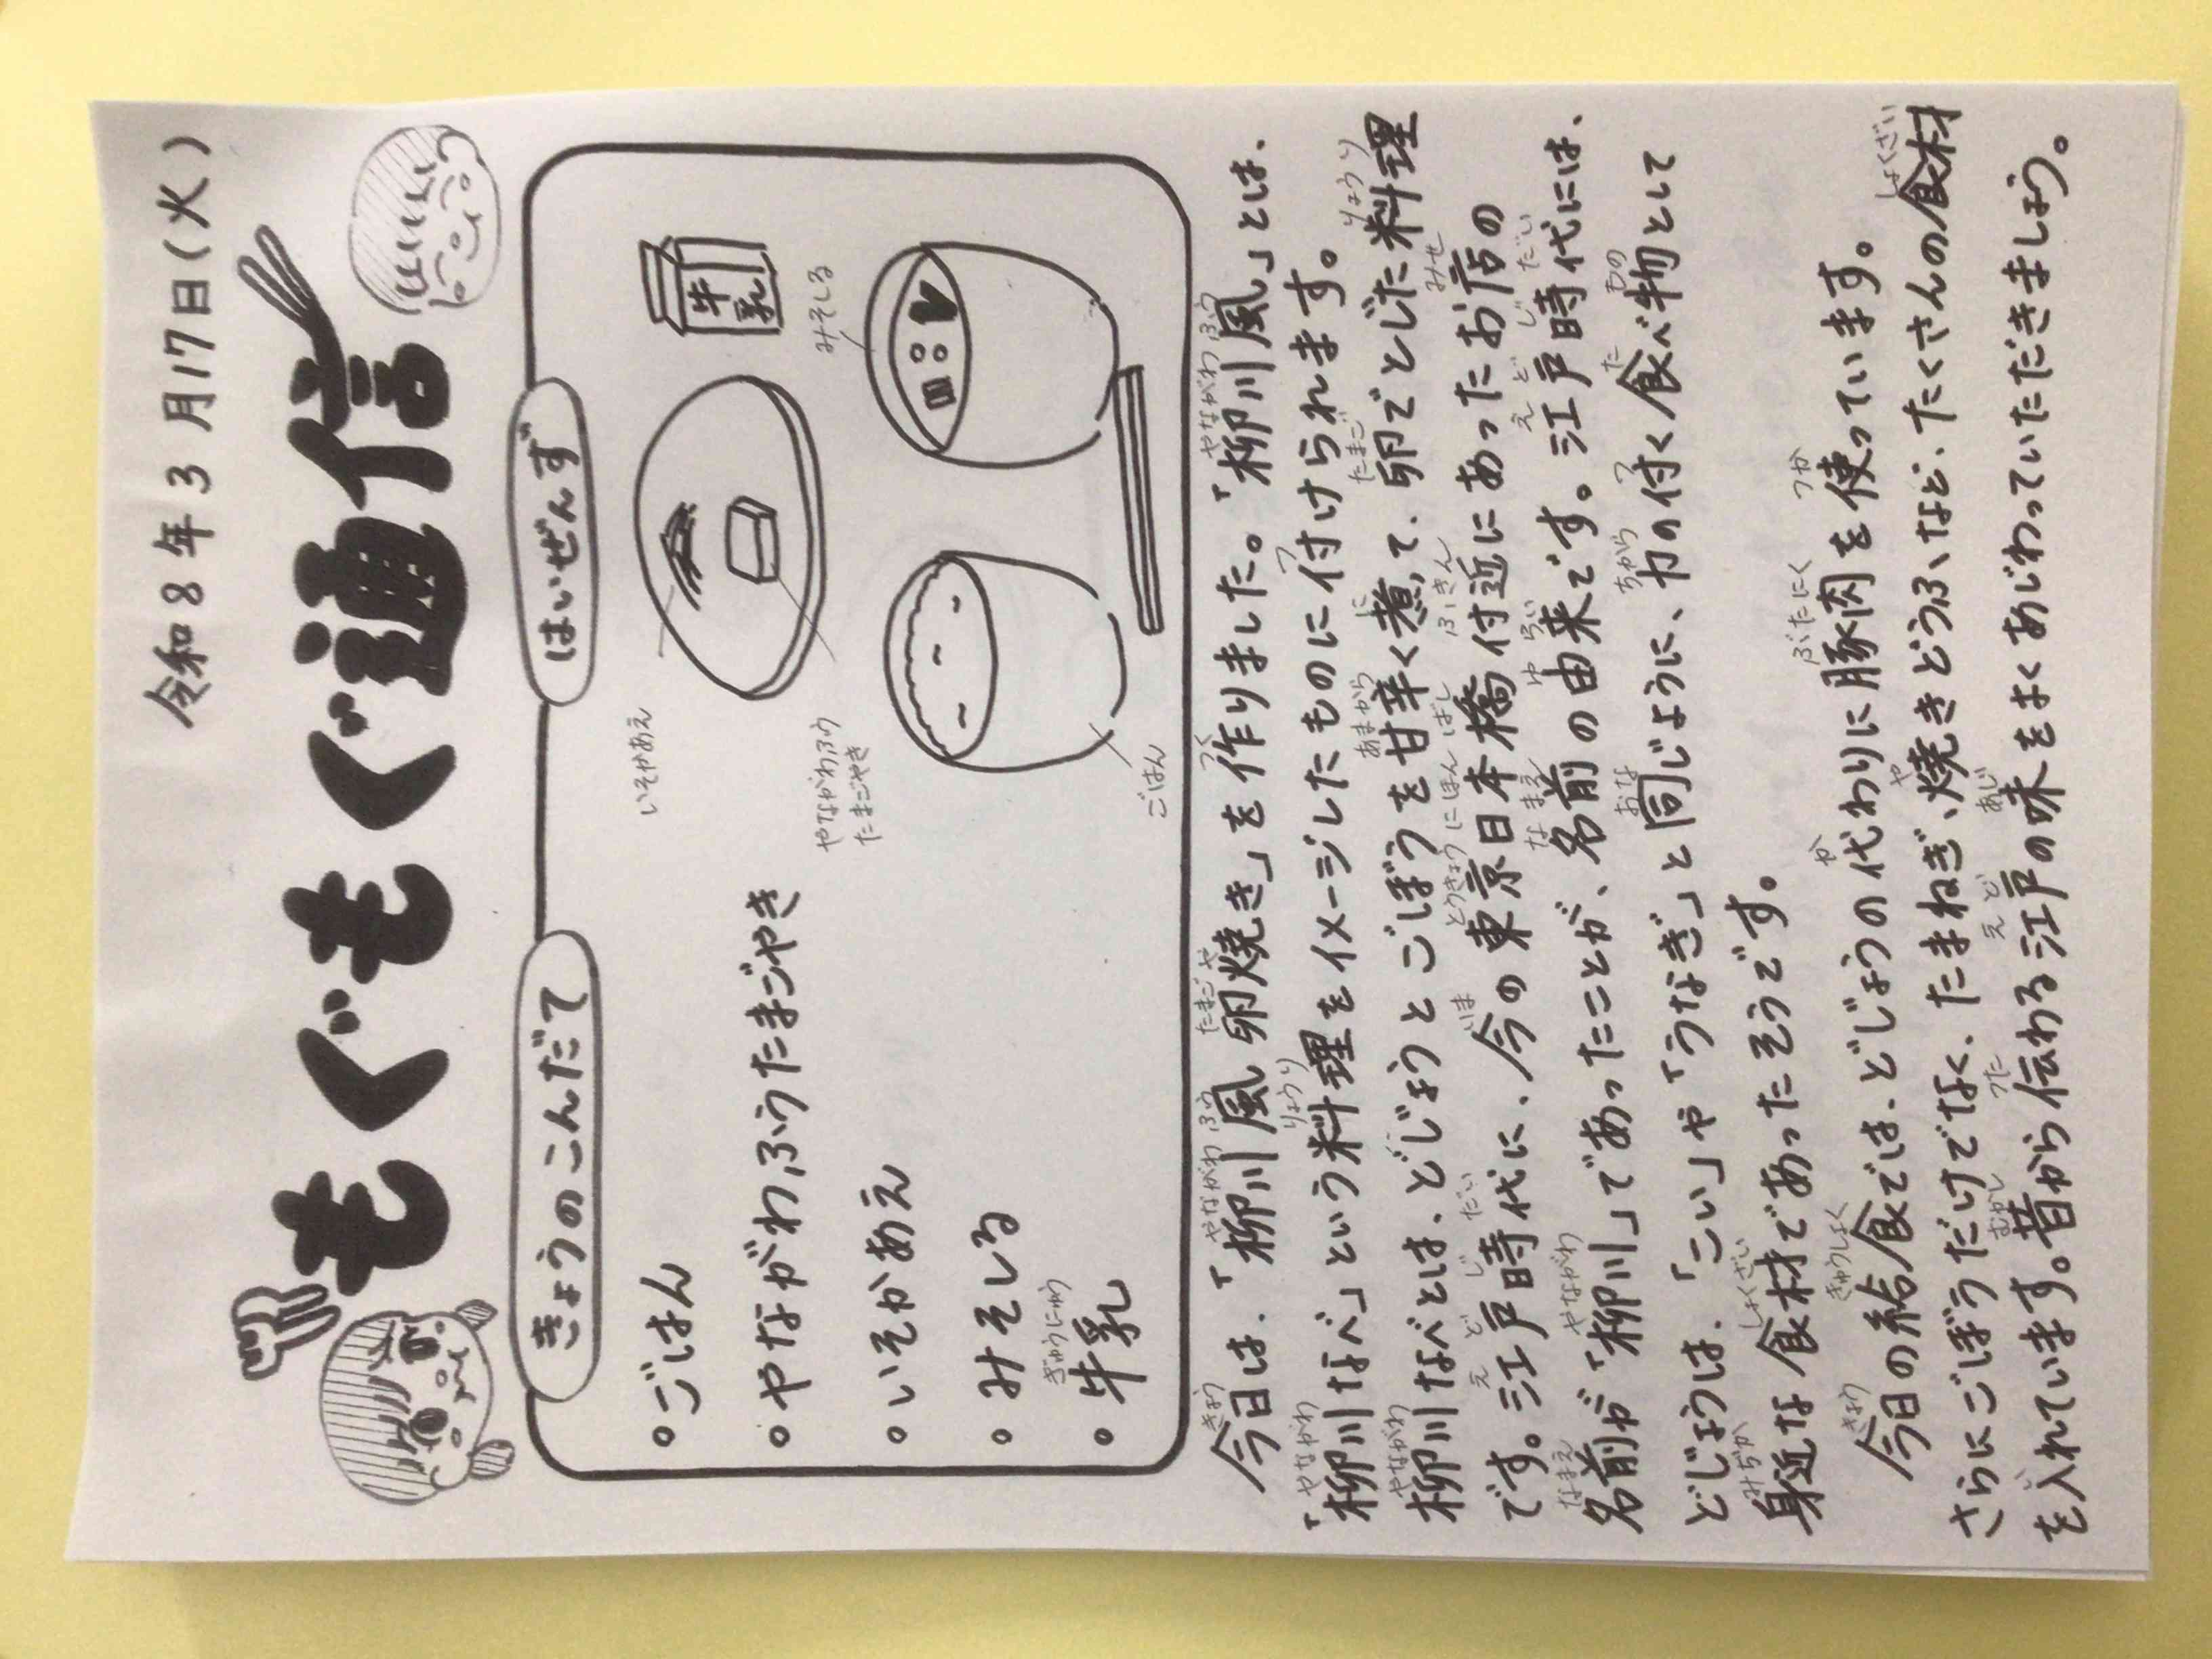 令和8年3月17日(火)
もぐもぐ通信
きょうのこんだて
はいぜんず
。ごはん
。やながわふうたまごやき
。いそかあえ
。みそしる
。牛乳
ぎゅうにゅう
いそかあえ
やながわふう
たまごやき
牛乳
みそしる
ごはん
今日は、「柳川風卵焼き」を作りました。「柳川風」とは、
「柳川なべ」という料理をイメージしたものに付けられます。
柳川なべとは、どじょうとごぼうを甘辛く煮て、卵でとじた料理
です。江戸時代に、今の東京日本橋付近にあったお店の
名前が「柳川」であったことが、名前の由来です。江戸時代には、
どじょうは、「こい」や「うなぎ」と同じように、力の付く食べ物として
身近な食材であったそうです。
今日の給食では、どじょうの代わりに豚肉を使っています。
さらにごぼうだけでなく、たまねぎ、焼きどうふ、など、たくさんの食材
を入れています。昔から伝わる江戸の味をよくあじわっていただきましょう。